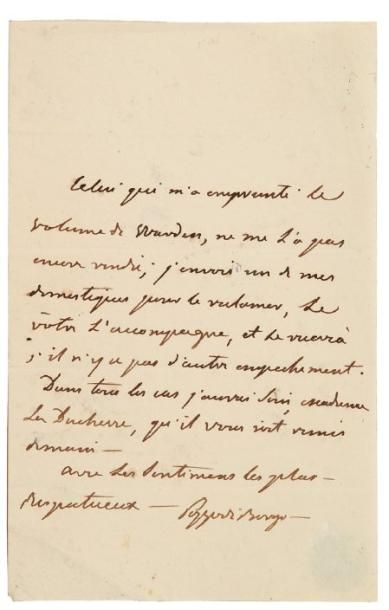 Celui qui m'a emprunté le
volume de Warden, ne me l'a pas
encore rendu; j'envois un de mes
domestiques pour le reclamer, le
vôtre l'accompagne, et le
s'il n'y a pas d'autre empechement.
Dans tous les cas j'aurai soin, Madame
la Duchesse, qu'il vous soit remis
demain —
avec les sentimens les plus —
respectueux — Pozzo di Borgo —